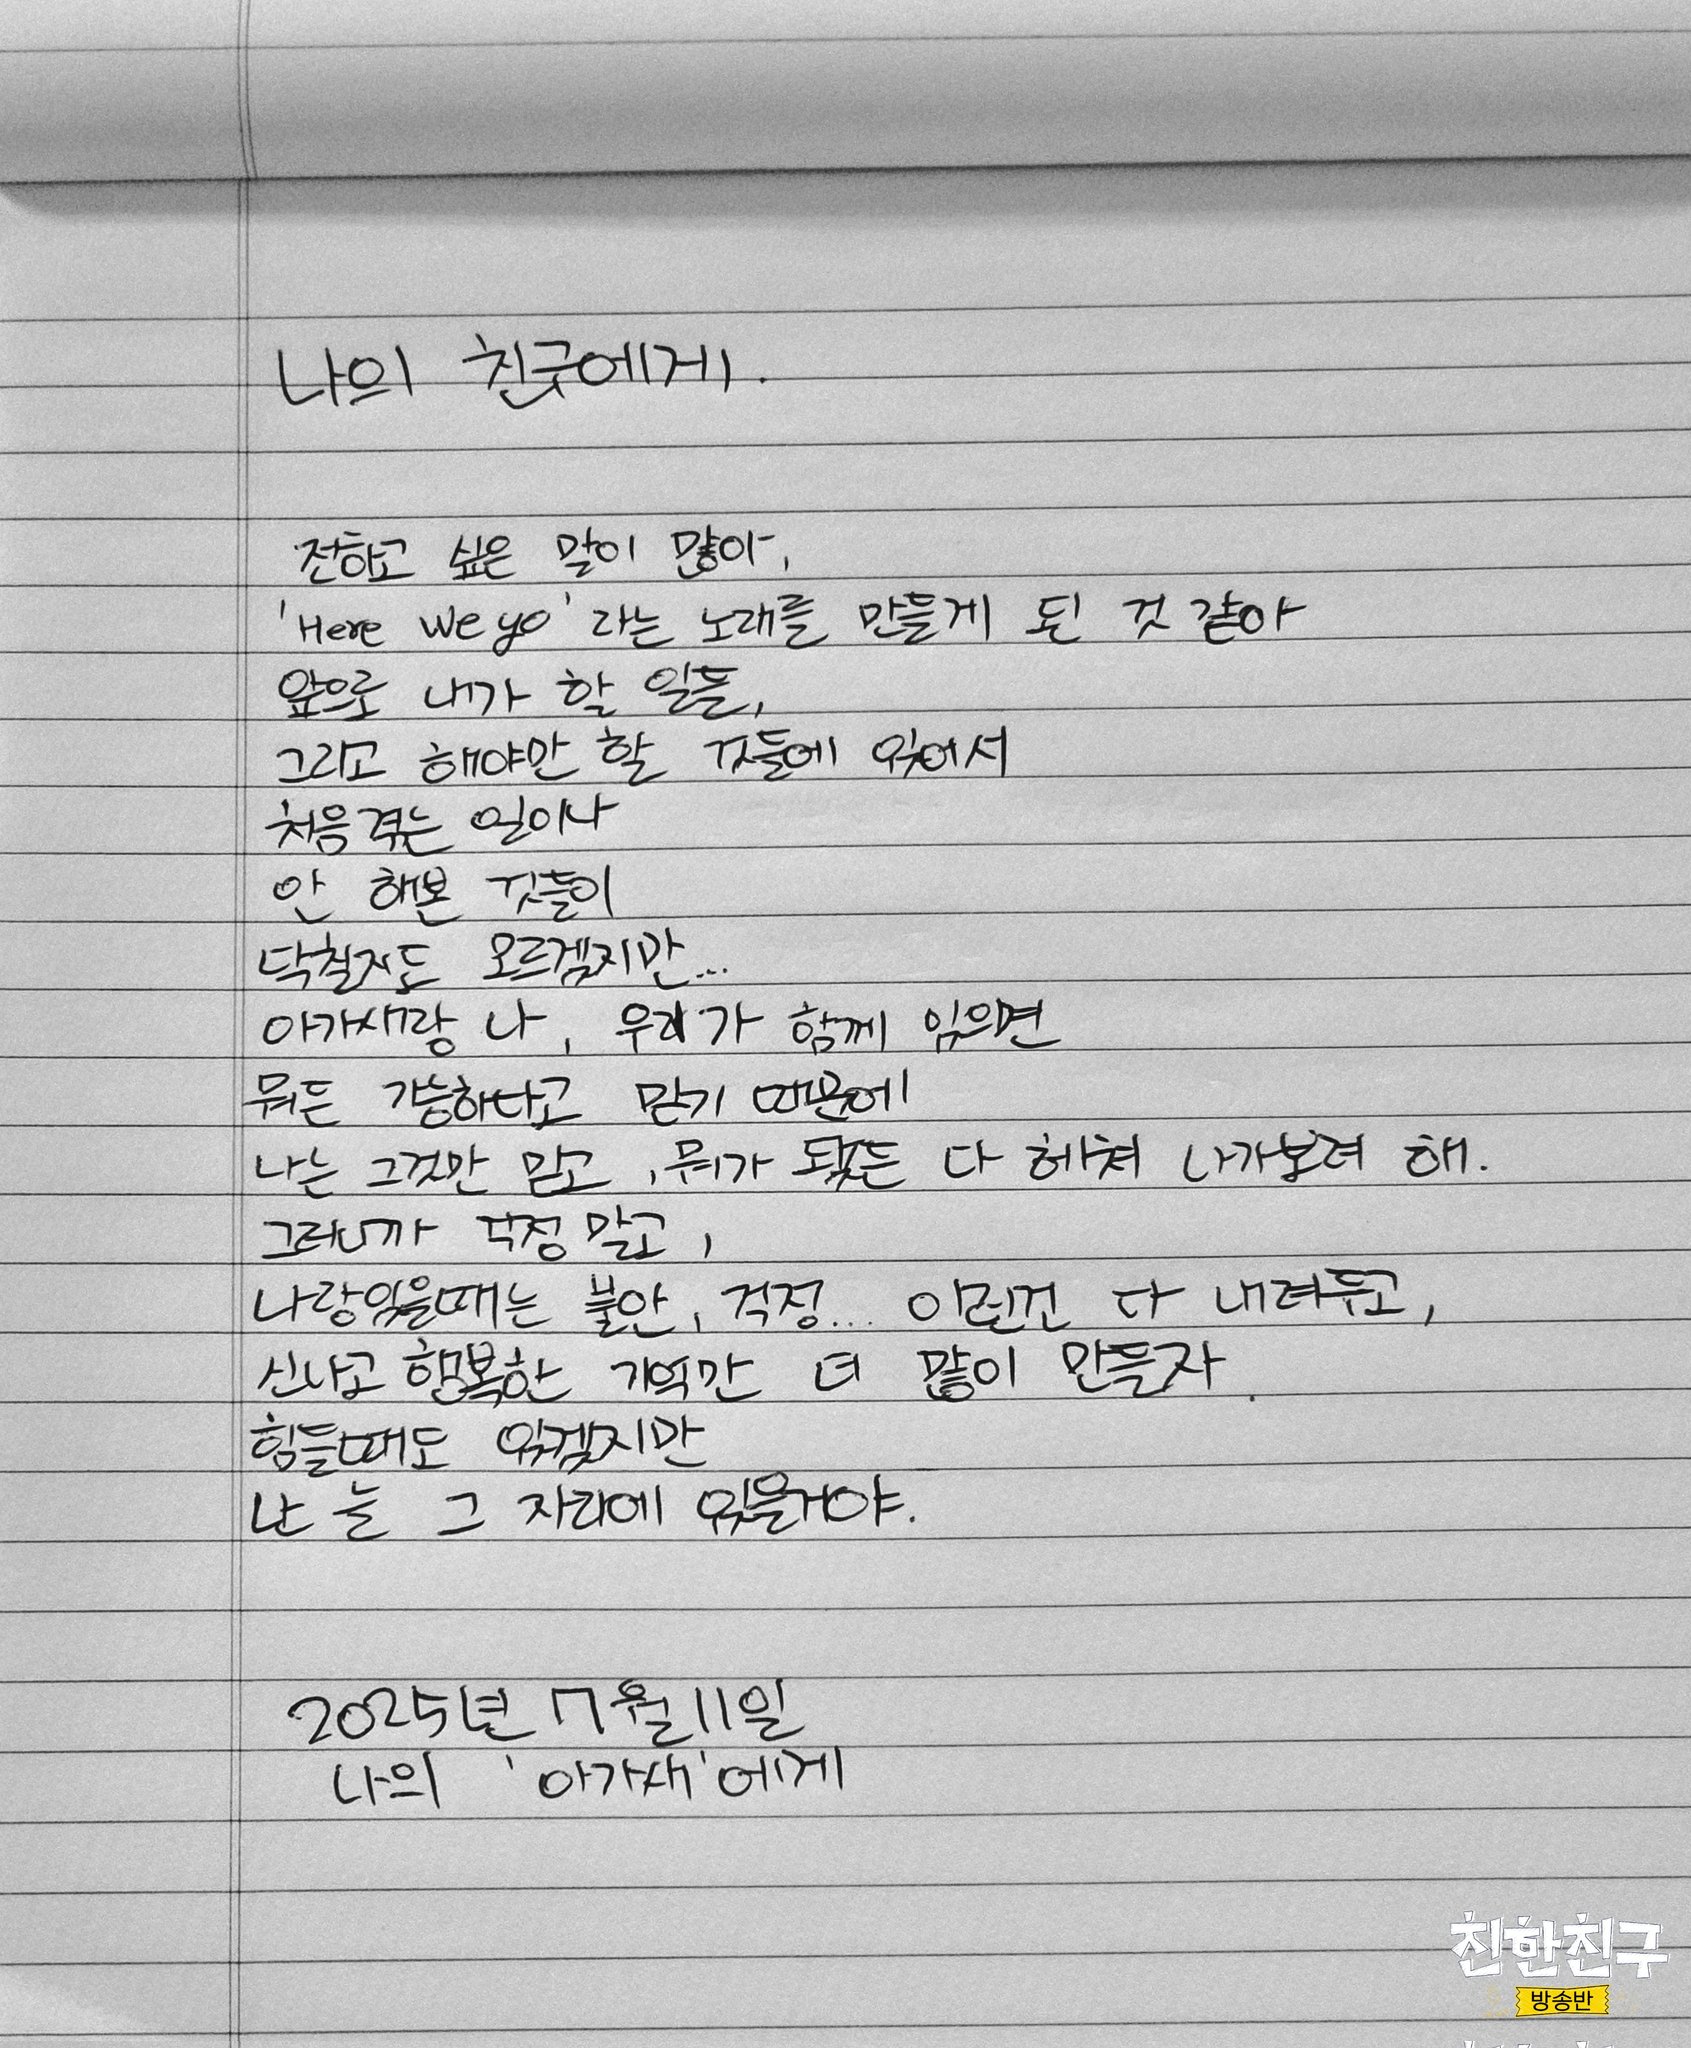 나의 친구에게.
전하고 싶은 말이 많아,
'Here we go'라는 노래를 만들게 된 것 같아
앞으로 내가 할 일들,
그리고 해야만 할 것들에 있어서
처음 겪는 일이나
안 해본 것들이
닥칠지도 모르겠지만...
아가새랑 나, 우리가 함께 있으면
뭐든 가능하다고 믿기 때문에
나는 그것만 믿고, 뭐가 됐든 다 헤쳐 나가보려 해.
그러니까 걱정 말고,
나랑있을때는 불안, 걱정... 이런건 다 내려두고,
신나고 행복한 기억만 더 많이 만들자.
힘들때도 있겠지만
난 늘 그 자리에 있을거야.
2025년 7월 11일
나의 '아가새'에게
친한친구
방송반